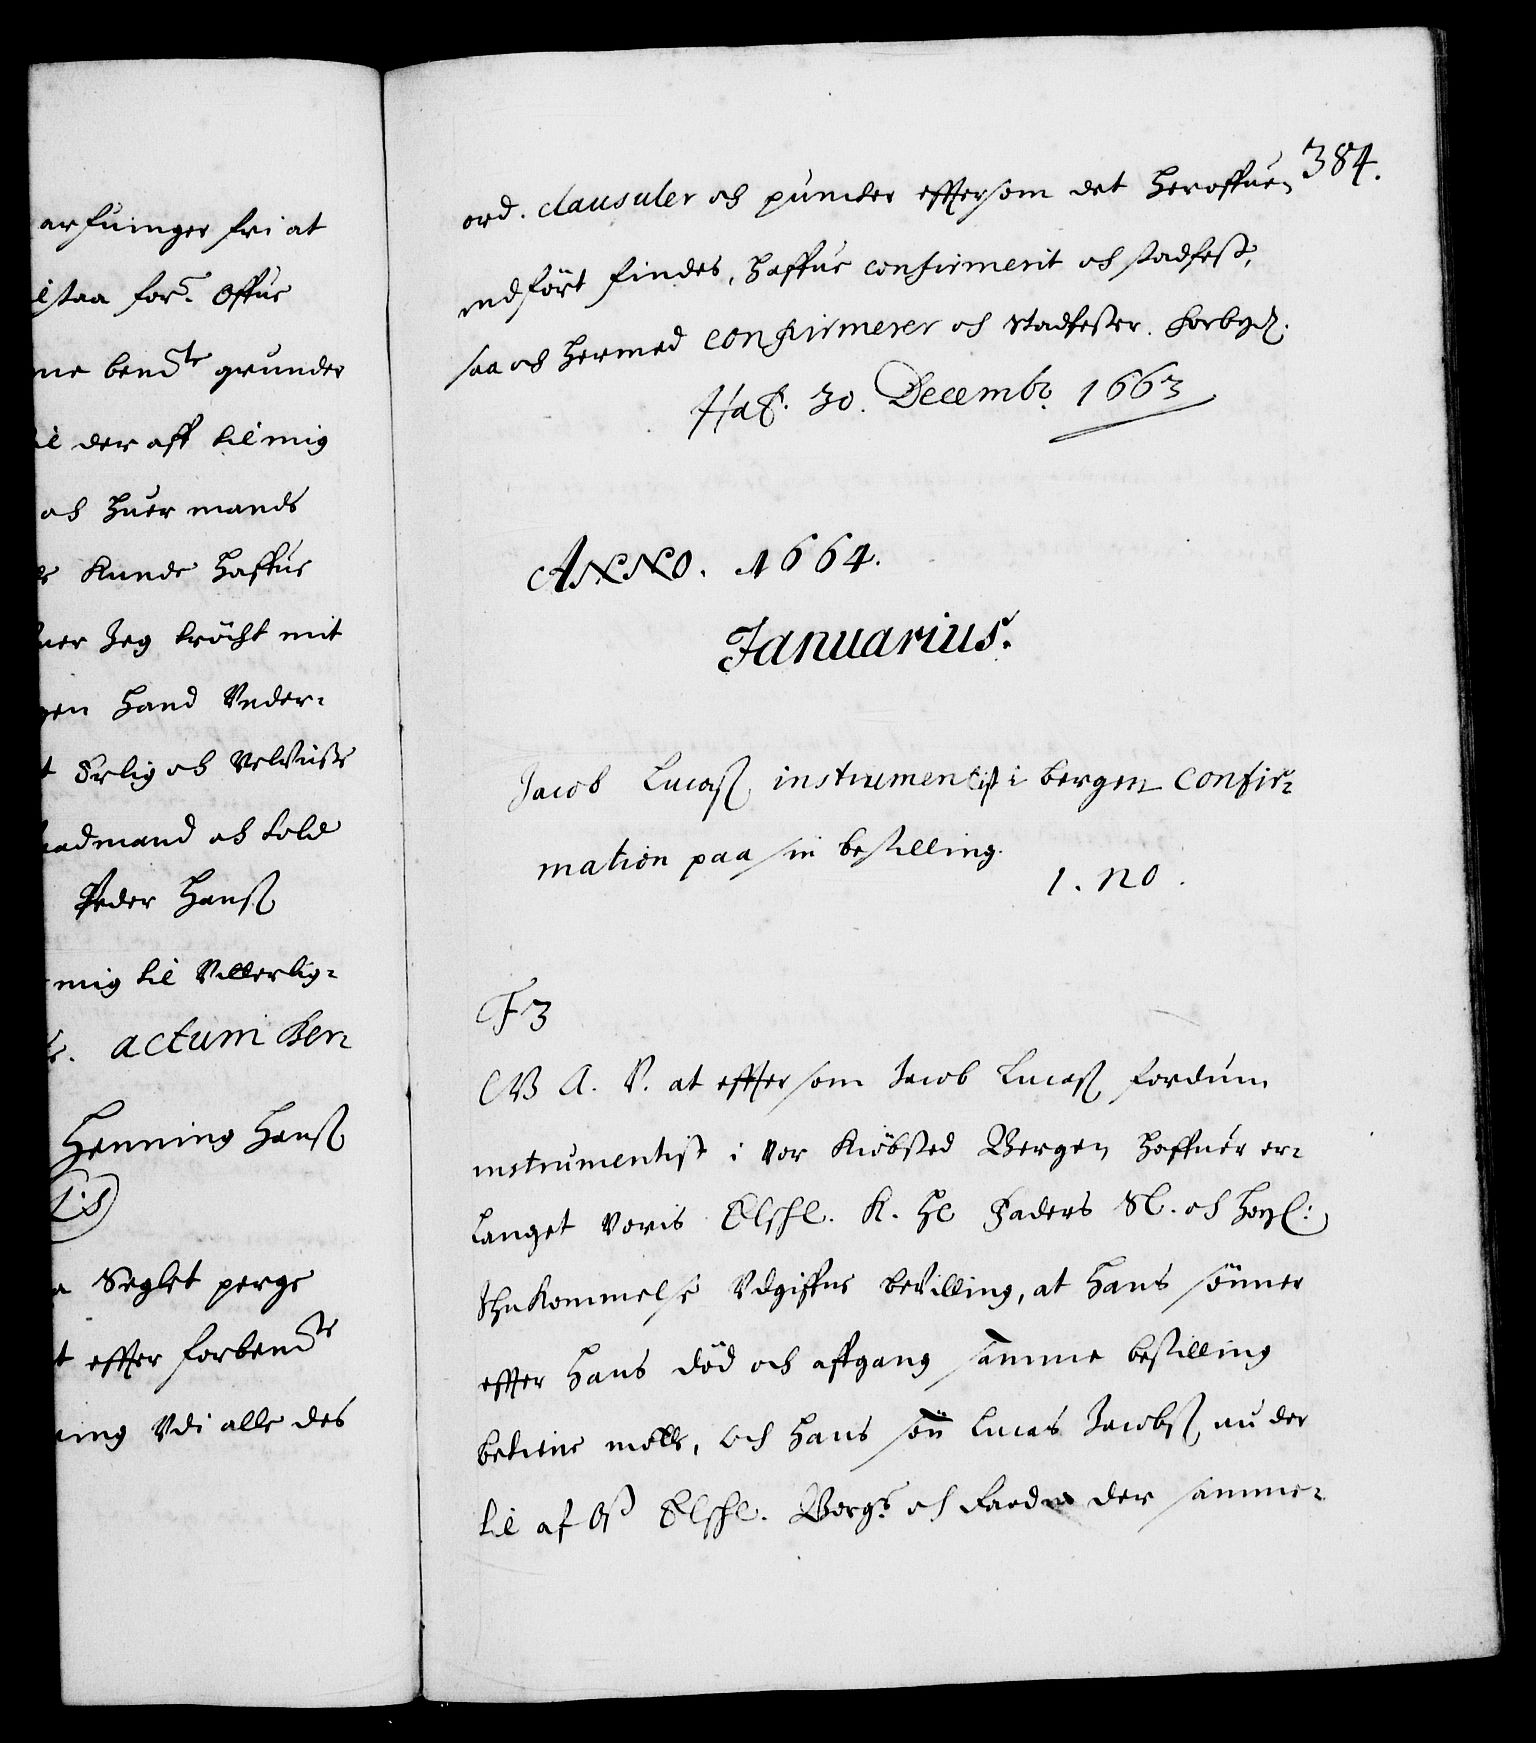 arfuinger fri at
staa for: Offue
me bemte grunder
der aff til mig
och huer mands
Kunde haffue
uer Jeg trÿcht mit
gen hand Vnder-
t Erlig och Velwiisse
admand och told
Peder Hanß
mig til Vitterlig-
actum Ber-
Henning Hanß
L:S
Seglet perge
t effter forbemte
ning Vdi alle des
384.
ord. clausuler och puncter effter som det heroffuen
indført findes, haffue confirmerit och stadfest,
saa och hermed confirmerer och Stadfester. Forbyd.
Haf. 30. Decemb. 1663
ANNO. 1664.
Januarius.
Jacob Lucaß instrumentist i Bergen Confir-
mation paa sin bestilling.
1. no.
F3
G. A. V. at effter som Jacob Lucaß fordum
instrumentist i Vor Kiøbsted Bergen haffuer er-
langet Voris Elschl. K. He Faders Sl. och høyl:
Ihukommelse Vdgiffne bevilling, at hans sønner
effter hans død och affgang samme bestilling
betiene motte, och hans søn Lucas Jacobß nu der
til af Oß Elschl. Borg: och Raad der samme-